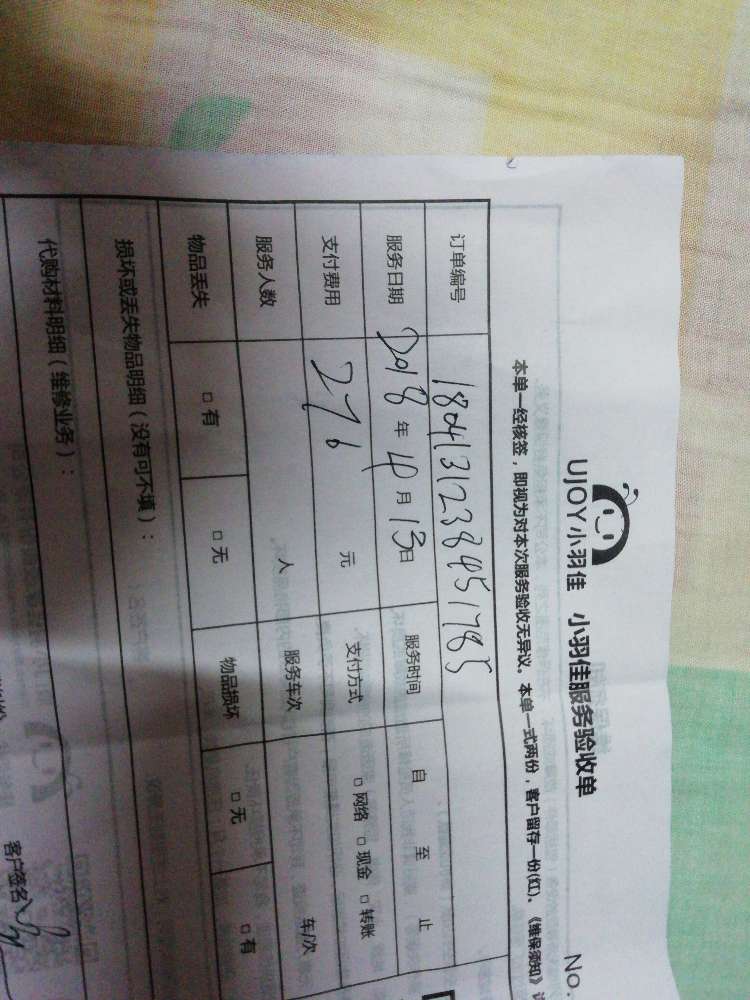 UJOY小羽佳 小羽佳服务验收单 No.
本单一经核签，即视为对本次服务验收无异议。本单一式两份，客户留存一份(红)、《维保须知》
订单编号 1804131238451785
服务日期 2018年4月13日 服务时间 自 至 止
支付费用 276 元 支付方式 □网络 □现金 □转账
服务人数 人 服务车次 车/次
物品丢失 □有 □无 物品损坏 □无 □有
损坏或丢失物品明细（没有可不填）：
代购材料明细（维修业务）：
客户签名